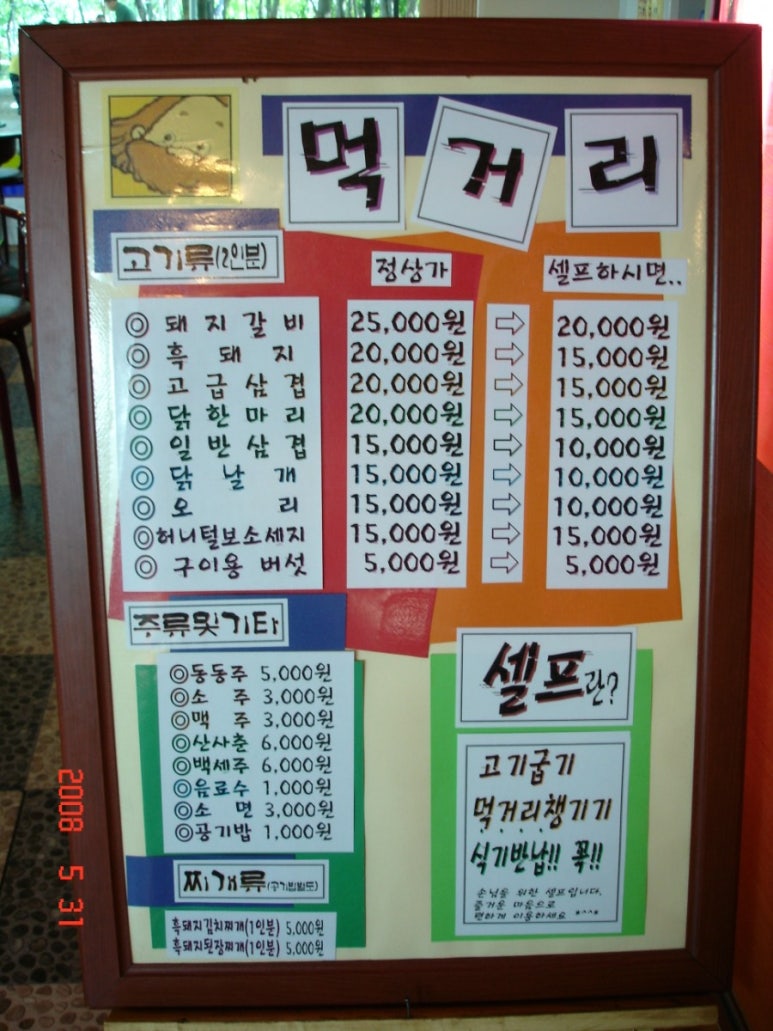 먹거리
고기류(2인분) 정상가 셀프하시면..
◎ 돼지갈비 25,000원 ⇨ 20,000원
◎ 흑돼지 20,000원 ⇨ 15,000원
◎ 고급삼겹 20,000원 ⇨ 15,000원
◎ 닭한마리 20,000원 ⇨ 15,000원
◎ 일반삼겹 15,000원 ⇨ 10,000원
◎ 닭날개 15,000원 ⇨ 10,000원
◎ 오리 15,000원 ⇨ 10,000원
◎ 허니털보소세지 15,000원 ⇨ 15,000원
◎ 구이용 버섯 5,000원 ⇨ 5,000원
주류및기타
◎동동주 5,000원
◎소주 3,000원
◎맥주 3,000원
◎산사춘 6,000원
◎백세주 6,000원
◎음료수 1,000원
◎소면 3,000원
◎공기밥 1,000원
찌개류(공기밥별도)
흑돼지김치찌개(1인분) 5,000원
흑돼지된장찌개(1인분) 5,000원
셀프란?
고기굽기
먹거리챙기기
식기반납!! 꼭!!
손님을 위한 셀프입니다.
즐거운 마음으로
편하게 이용하세요 *^^*
2008 5 31